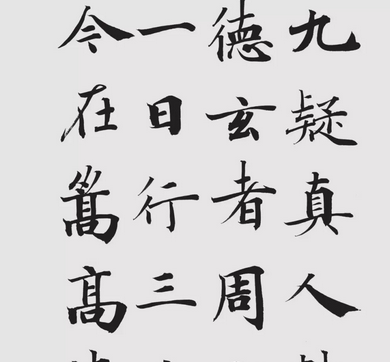 九疑真人
德玄者周
一日行三
今在嵩高